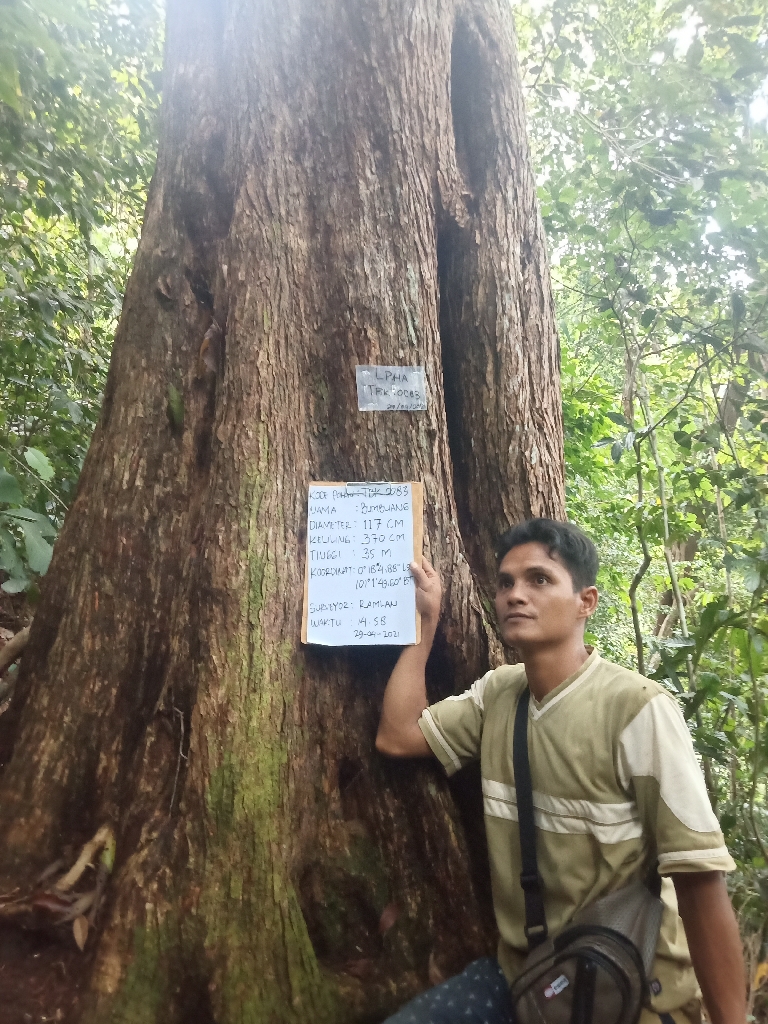 LPHA
TBK 0083
KODE POHON : TBK 0083
NAMA : BUMBUANG
DIAMETER : 117 CM
KELILING : 370 CM
TINGGI : 35 M
KOORDINAT : 0°18'4.88"
101°1'43.60" B
SURVEYOR : RAMLAN
WAKTU : 14.58
29-04-2021